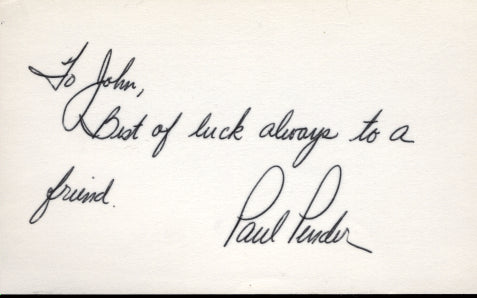 To John,
Best of luck always to a
friend.
Paul Pender